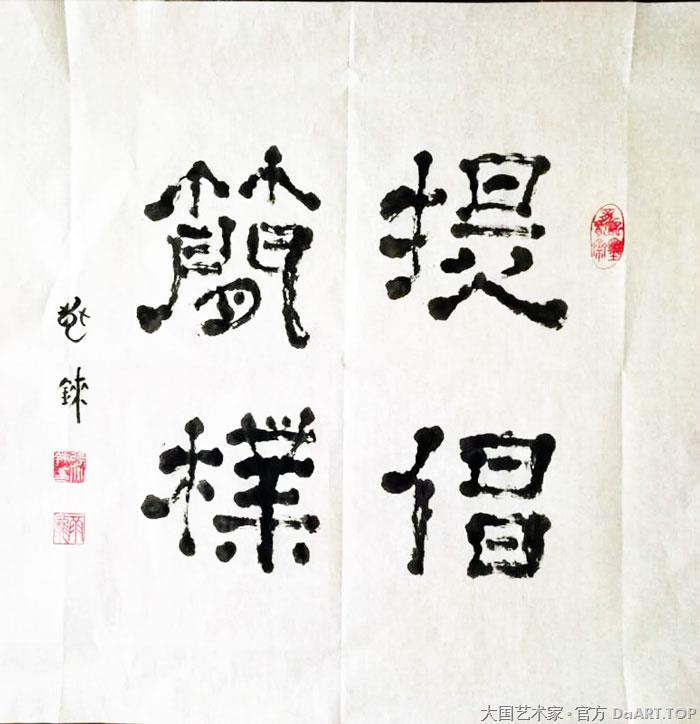 提倡
簡樸
大国艺术家·官方 DaART.TOP